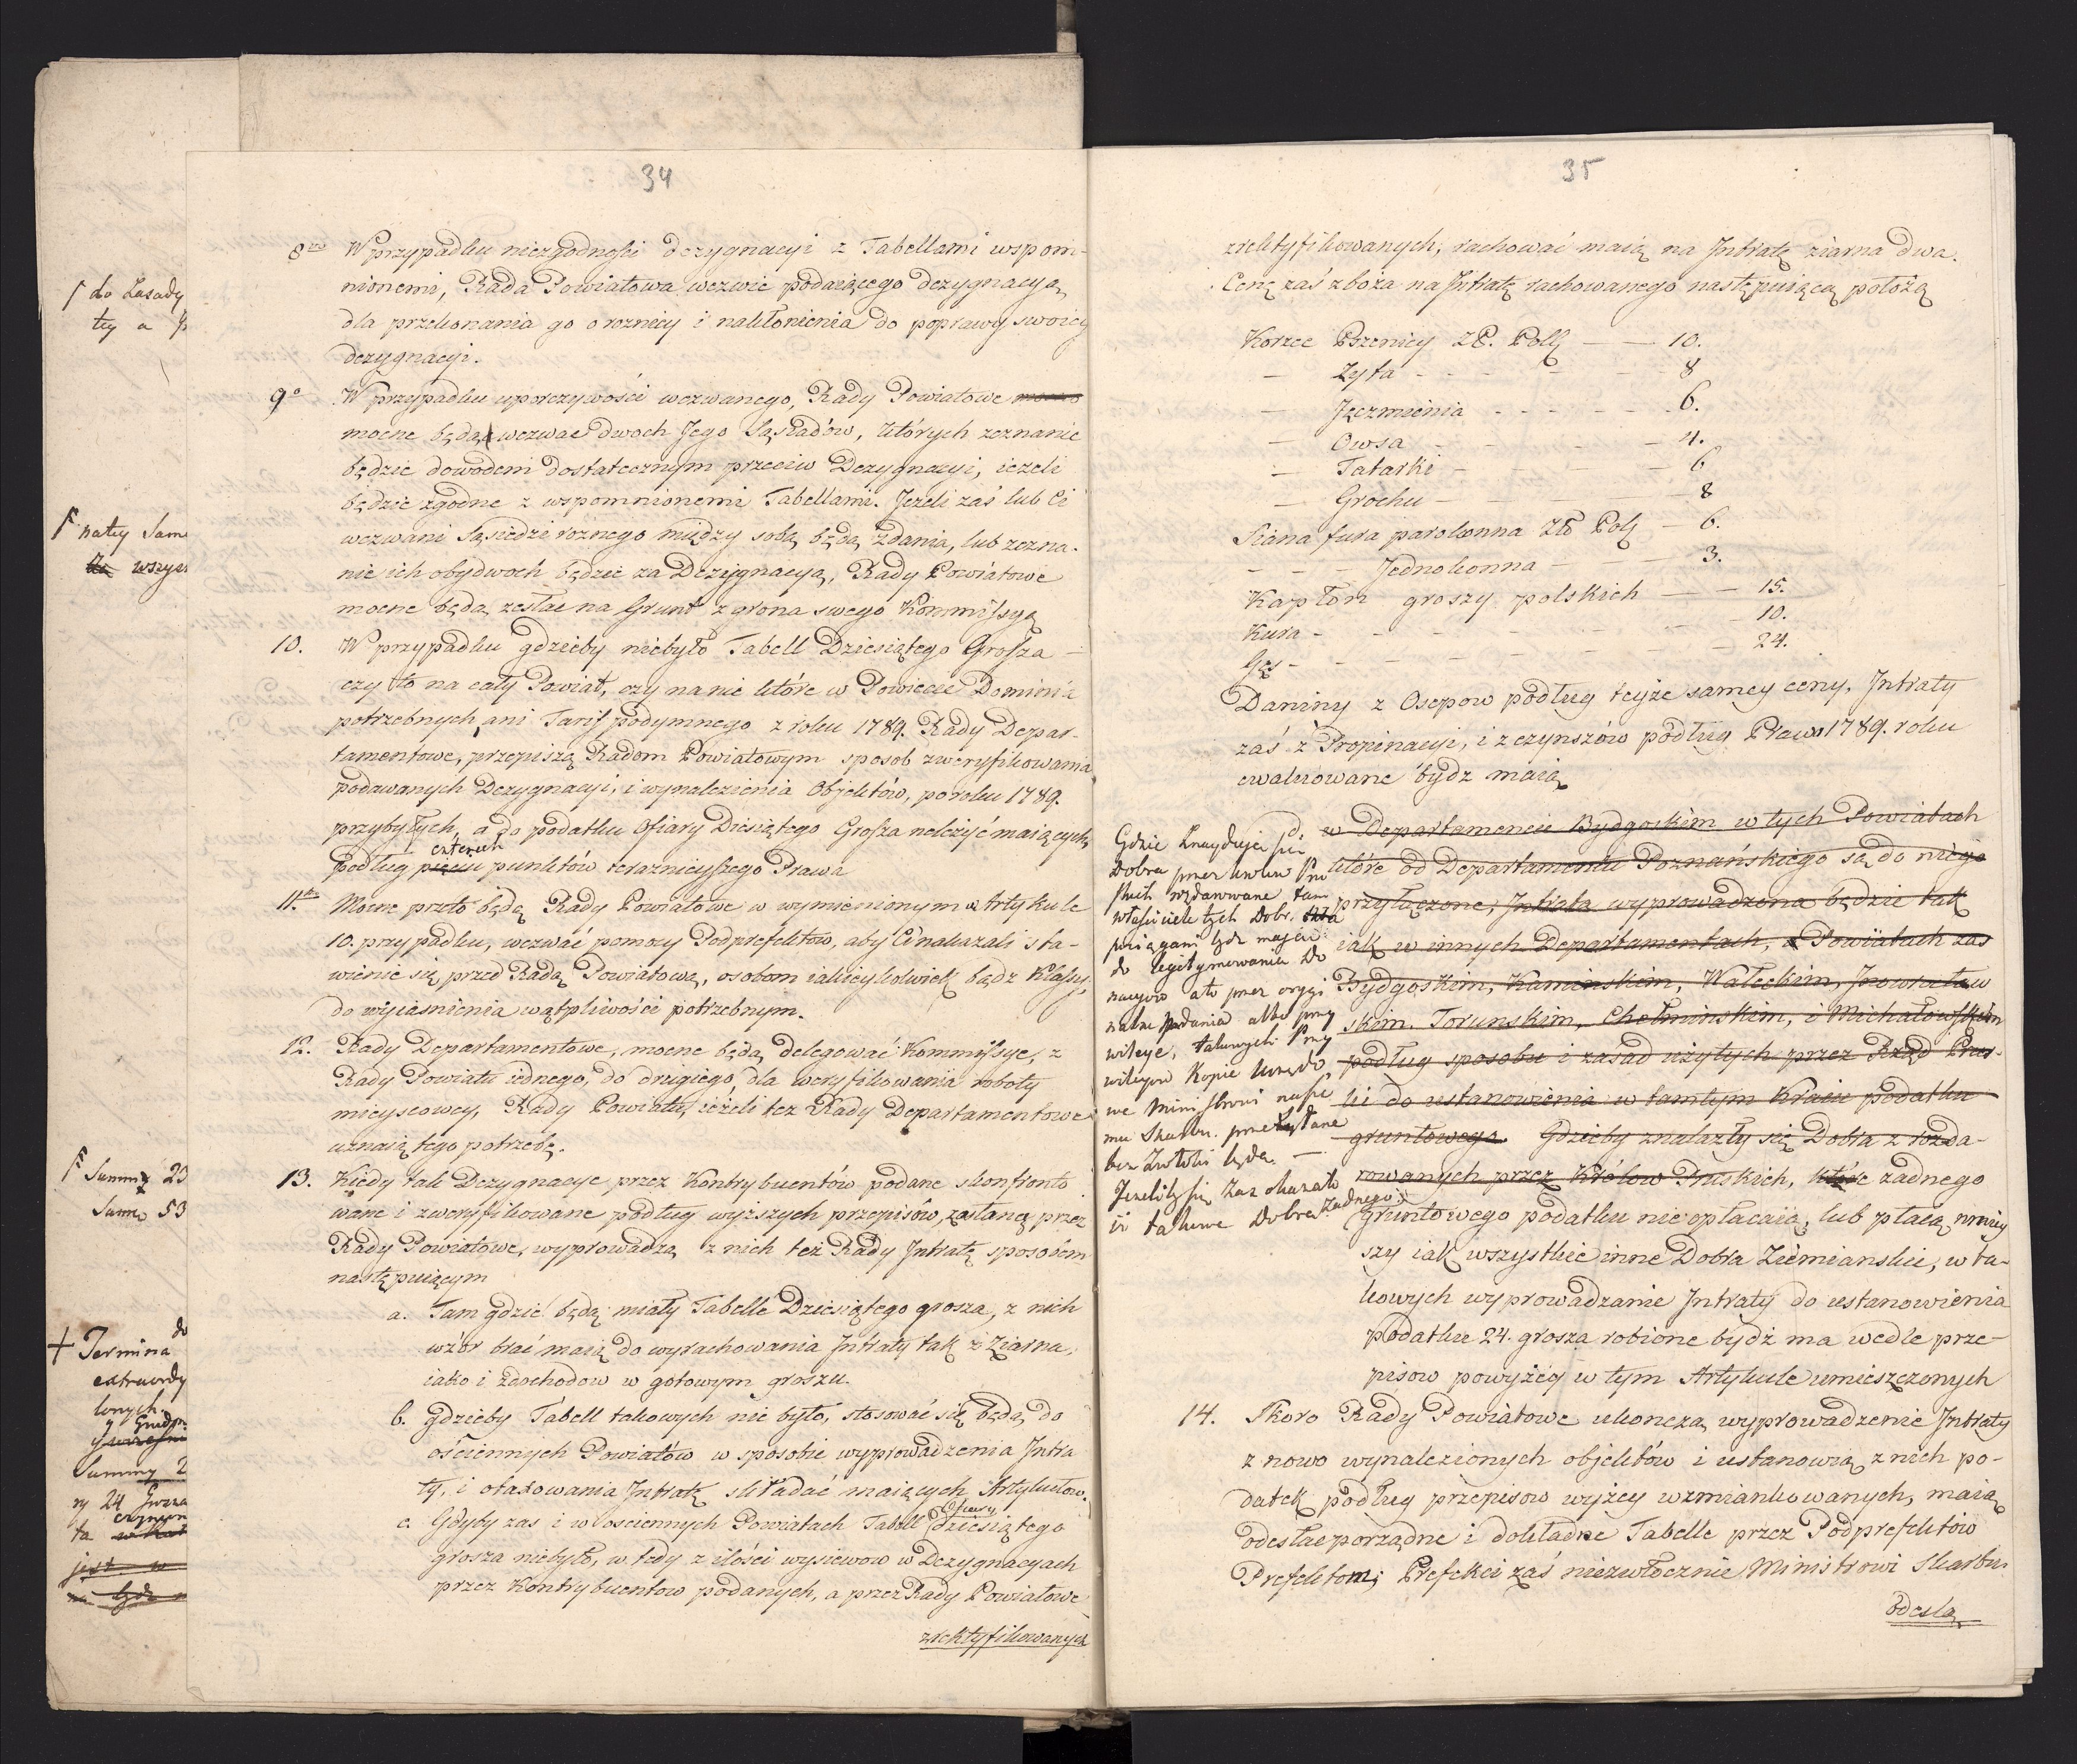 34
8vo W przypadku niezgodności dezygnacyi z Tabellami wspom-
nionemi, Rada Powiatowa wezwie podaiącego dezygnacyą,
dla przekonania go o roznicy i nakłonienia do poprawy swoiey
dezygnacyi.
9o W przypadku uporczywości wezwanego, Rady Powiatowe
mocne będą wezwac dwoch Jego Sąsiadów, których zeznanie
będzie dowodem dostatecznym przeciw Dezygnacyi, iezeli
będzie zgodne z wspomnionemi Tabellami. Jeżeli zaś lub Ci
wezwani Sąsiedzi roznego między sobą będą zdania, lub zezna-
nie ich obydwoch będzie za Dezygnacyą, Rady Powiatowe
mocne będą zesłac na Grunt z grona swego Kommissyą
10. W przypadku gdzieby niebyło Tabell Dziesiątego Grosza
czy to na cały Powiat, czy na nie które w Powiecie Dominia
potrzebnych, ani Tarif podymnego z roku 1789. Rady Depar-
tamentowe, przepiszą Radom Powiatowym sposob zweryfikowania
podawanych Dezygnacyi, i wynalezienia Objektów, po roku 1789.
przybyłych, a do podatku Ofiary Dziesiątego Grosza należyć maiących,
czterech
podług pięciu punktów teraznieyszego Prawa
11te Mocne przeto będą Rady Powiatowe w wymienionym w Artykule
10. przypadku, wezwać pomocy Podprefektow, aby Ci nakazali sta-
wienie się przed Radą Powiatową, osobom iakieykolwiek bądz Klassy,
do wyiasnienia wątpliwości potrzebnym.
12. Rady Departamentowe, mocne będą delegować Kommissye, z
Rady Powiatu iednego, do drugiego, dla weryfikowania roboty
mieyscowey, Rady Powiatu, ieżeli tez Rady Departamentowe
uznaią tego potrzebę.
13. Kiedy tak Dezygnacye przez Kontrybuentów podane skonfronto
wane i zweryfikowane podług wyższych przepisów, zostaną przez
Rady Powiatowe, wyprowadzą z nich też Rady Jntratę sposobem
następuiącym
a. Tam gdzie będą miały Tabelle Dziesiątego grosza, z nich
wzór brać maią do wyrachowania Jntraty tak z Ziarna,
iako i zdochodow w gotowym groszu.
b. gdzieby Tabell takowych nie było, stosować się będą do
ościennych Powiatów w sposobie wyprowadzenia Jntra
ty, i otaxowania Jntratę składać maiących Artykułow.
Ofiary
c. Gdyby zas i w osciennych Powiatach Tabell Dziesiątego
grosza niebyło, w tedy z ilości wysiewow w Dezygnacyach
przez Kontrybuentow podanych, a przez Rady Powiatowe
zrektyfikowanych
do Zasady
tey a
na tey Sam
wszys
Summy 23
Summ 53
do
+ Termina
extraordy
lonych
Summy 2
ny 24 Grosza
ta
jest w
35
zrektyfikowanych, rachować maią na Jntratę ziarna dwa.
Cenę zaś zboża na Jntratę rachowanego następuiącą położą
Korzec Pszenicy Zł. Pols — — 10.
— Zyta - - - - - 8
— Jęczmienia - - - - - 6.
— Owsa - - - - 4.
— Tatarki - - - - 6
— Grochu - - - - 8
Siana fura parokonna Zł Pols — 6.
- - - Jednokonna - - - 3.
Kapłon groszy polskich — — 15.
Kura - - - - - - 10.
Gęs - - - - - - 24.
Daniny z Osepow podług teyże samey ceny. Jntraty
zaś z Propinacyi, i z czynszów podług Prawa 1789. roku
ewaluowane bydz maią
d. w Departamencie Bydgoskim w tych Powiatach
które od Departamentu Poznańskiego są do niego
przyłączone, Jntrata wyprowadzona będzie tak
iak w innych Departamentach, a Powiatach zas
Bydgoskim, Kaminskim, Wałeckim, Jnowrocław
skim, Torunskim, Chełminskim, i Michałowskim
podług sposobu i zasad użytych przez Rząd Prus-
ki do ustanowienia w tamtym Kraiu podatku
gruntowego. Gdzieby znalazły się Dobra z rozda-
rowanych przez Królow Pruskich, które zadnego
gruntowego podatku nie opłacaią, lub płacą mniey
szy iak wszystkie inne Dobra Ziemianskie, w ta-
kowych wyprowadzanie Jntraty do ustanowienia
podatku 24. grosza robione bydź ma wedle prze-
pisow powyżey w tym Artykule umieszczonych
Gdzie Znayduią się
Dobra przez Krolow Pru
skich rozdarowane tam
właściciele tych Dobr
pociągani bydz maią
do legitymowania Do
nacyow albo przez orygi
nalne Nadania albo przy
wileye, takowych Przy
wileyow Kopie urzędo
we Ministrowi nasze
mu Skarbu przesyłane
bez Zwłoki będą —
Jeżeliby się Zas okazało
iż takowe Dobra Zadnego
14. Skoro Rady Powiatowe ukonczą wyprowadzenie Jntraty
z nowo wynalezionych objektów i ustanowią z nich po-
datek podług przepisow wyżey wzmiankowanych, maią
odesłac porządne i dokładne Tabelle przez Podprefektów
Prefektom; Prefekci zaś niezwłocznie Ministrowi Skarbu
odesłą